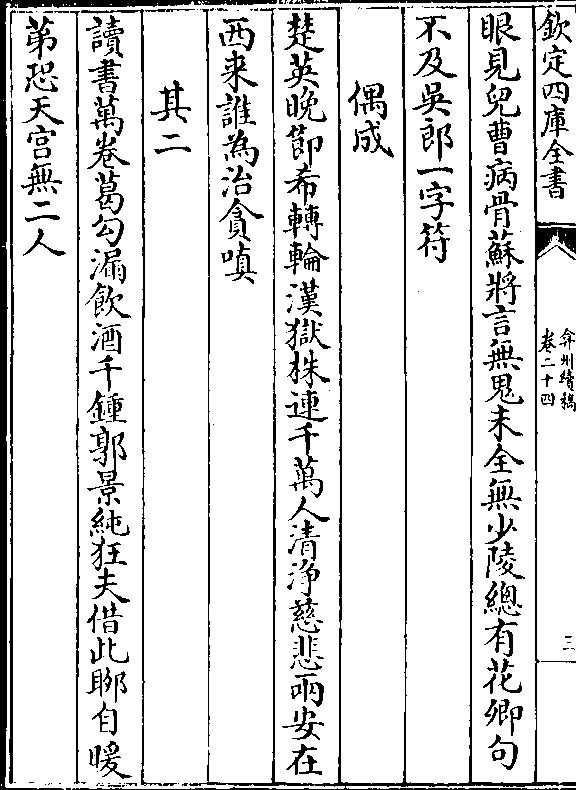 欽定四庫全書
弇州續稿
卷二十四
三
眼見兒曹病骨蘇將言無鬼未全無少陵總有花卿句
不及吳郎一字符
偶成
楚英晚節希轉輪漢獄株連千萬人清浄慈悲兩安在
西来誰為治貪嗔
其二
讀書萬卷葛勾漏飲酒千鍾郭景純狂夫借此聊自暖
苐恐天宫無二人